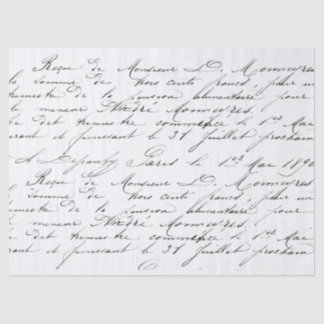 Reçu de Monsieur D. Monnayres
la somme de trois cents francs, pour un
trimestre de la pension alimentaire pour
le mineur André Monnayres,
le dit trimestre commence le 1er Mai
courant et finissant le 31 juillet prochain
A Paris le 1er Mai 1890
Reçu de Monsieur D. Monnayres
somme de trois cents francs, pour un
trimestre de la pension alimentaire pour
le mineur André Monnayres,
le dit trimestre commence le 1er Mai
courant et finissant le 31 juillet prochain